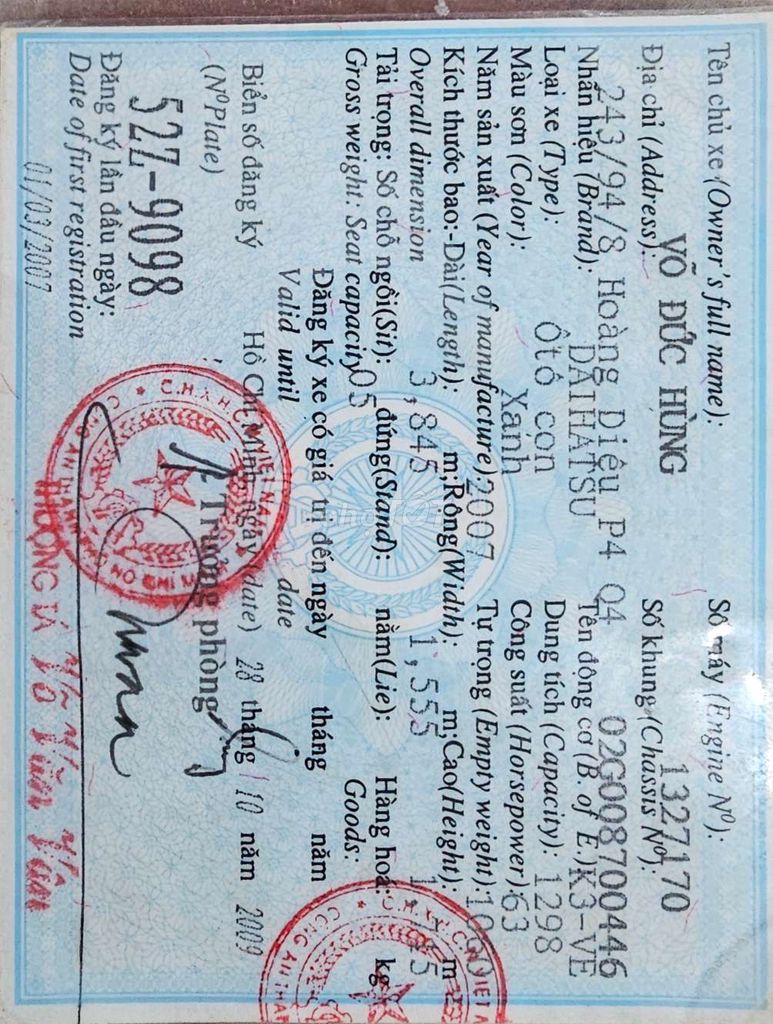 Tên chủ xe (Owner's full name): Số máy (Engine Nº):
VÕ ĐỨC HÙNG 1327170
Địa chỉ (Address): Số khung (Chassis Nº):
243/94/8 Hoàng Diệu P4 Q4 02G008700446
Nhãn hiệu (Brand): DAIHATSU Tên động cơ (B. of E.) K3-VE
Loại xe (Type): Ôtô con Dung tích (Capacity): 1298
Màu sơn (Color): Xanh Công suất (Horsepower): 63
Năm sản xuất (Year of manufacture): 2007 Tự trọng (Empty weight):
Kích thước bao:-Dài(Length): m;Rộng(Width): m;Cao(Height): m
Overall dimension 3,845 1,555
Tải trọng: Số chỗ ngồi(Sit): đứng(Stand): nằm(Lie): Hàng hoá: kg
Gross weight. Seat capacity 05 Goods:
Đăng ký xe có giá trị đến ngày tháng năm
Valid until date
Biển số đăng ký Hồ Chí Minh ngày (date) 28 tháng 10 năm 2009
(NºPlate)
52Z-9098
Trưởng phòng
Đăng ký lần đầu ngày:
Date of first registration
01/03/2007
THƯỢNG TÁ Võ Văn Vân